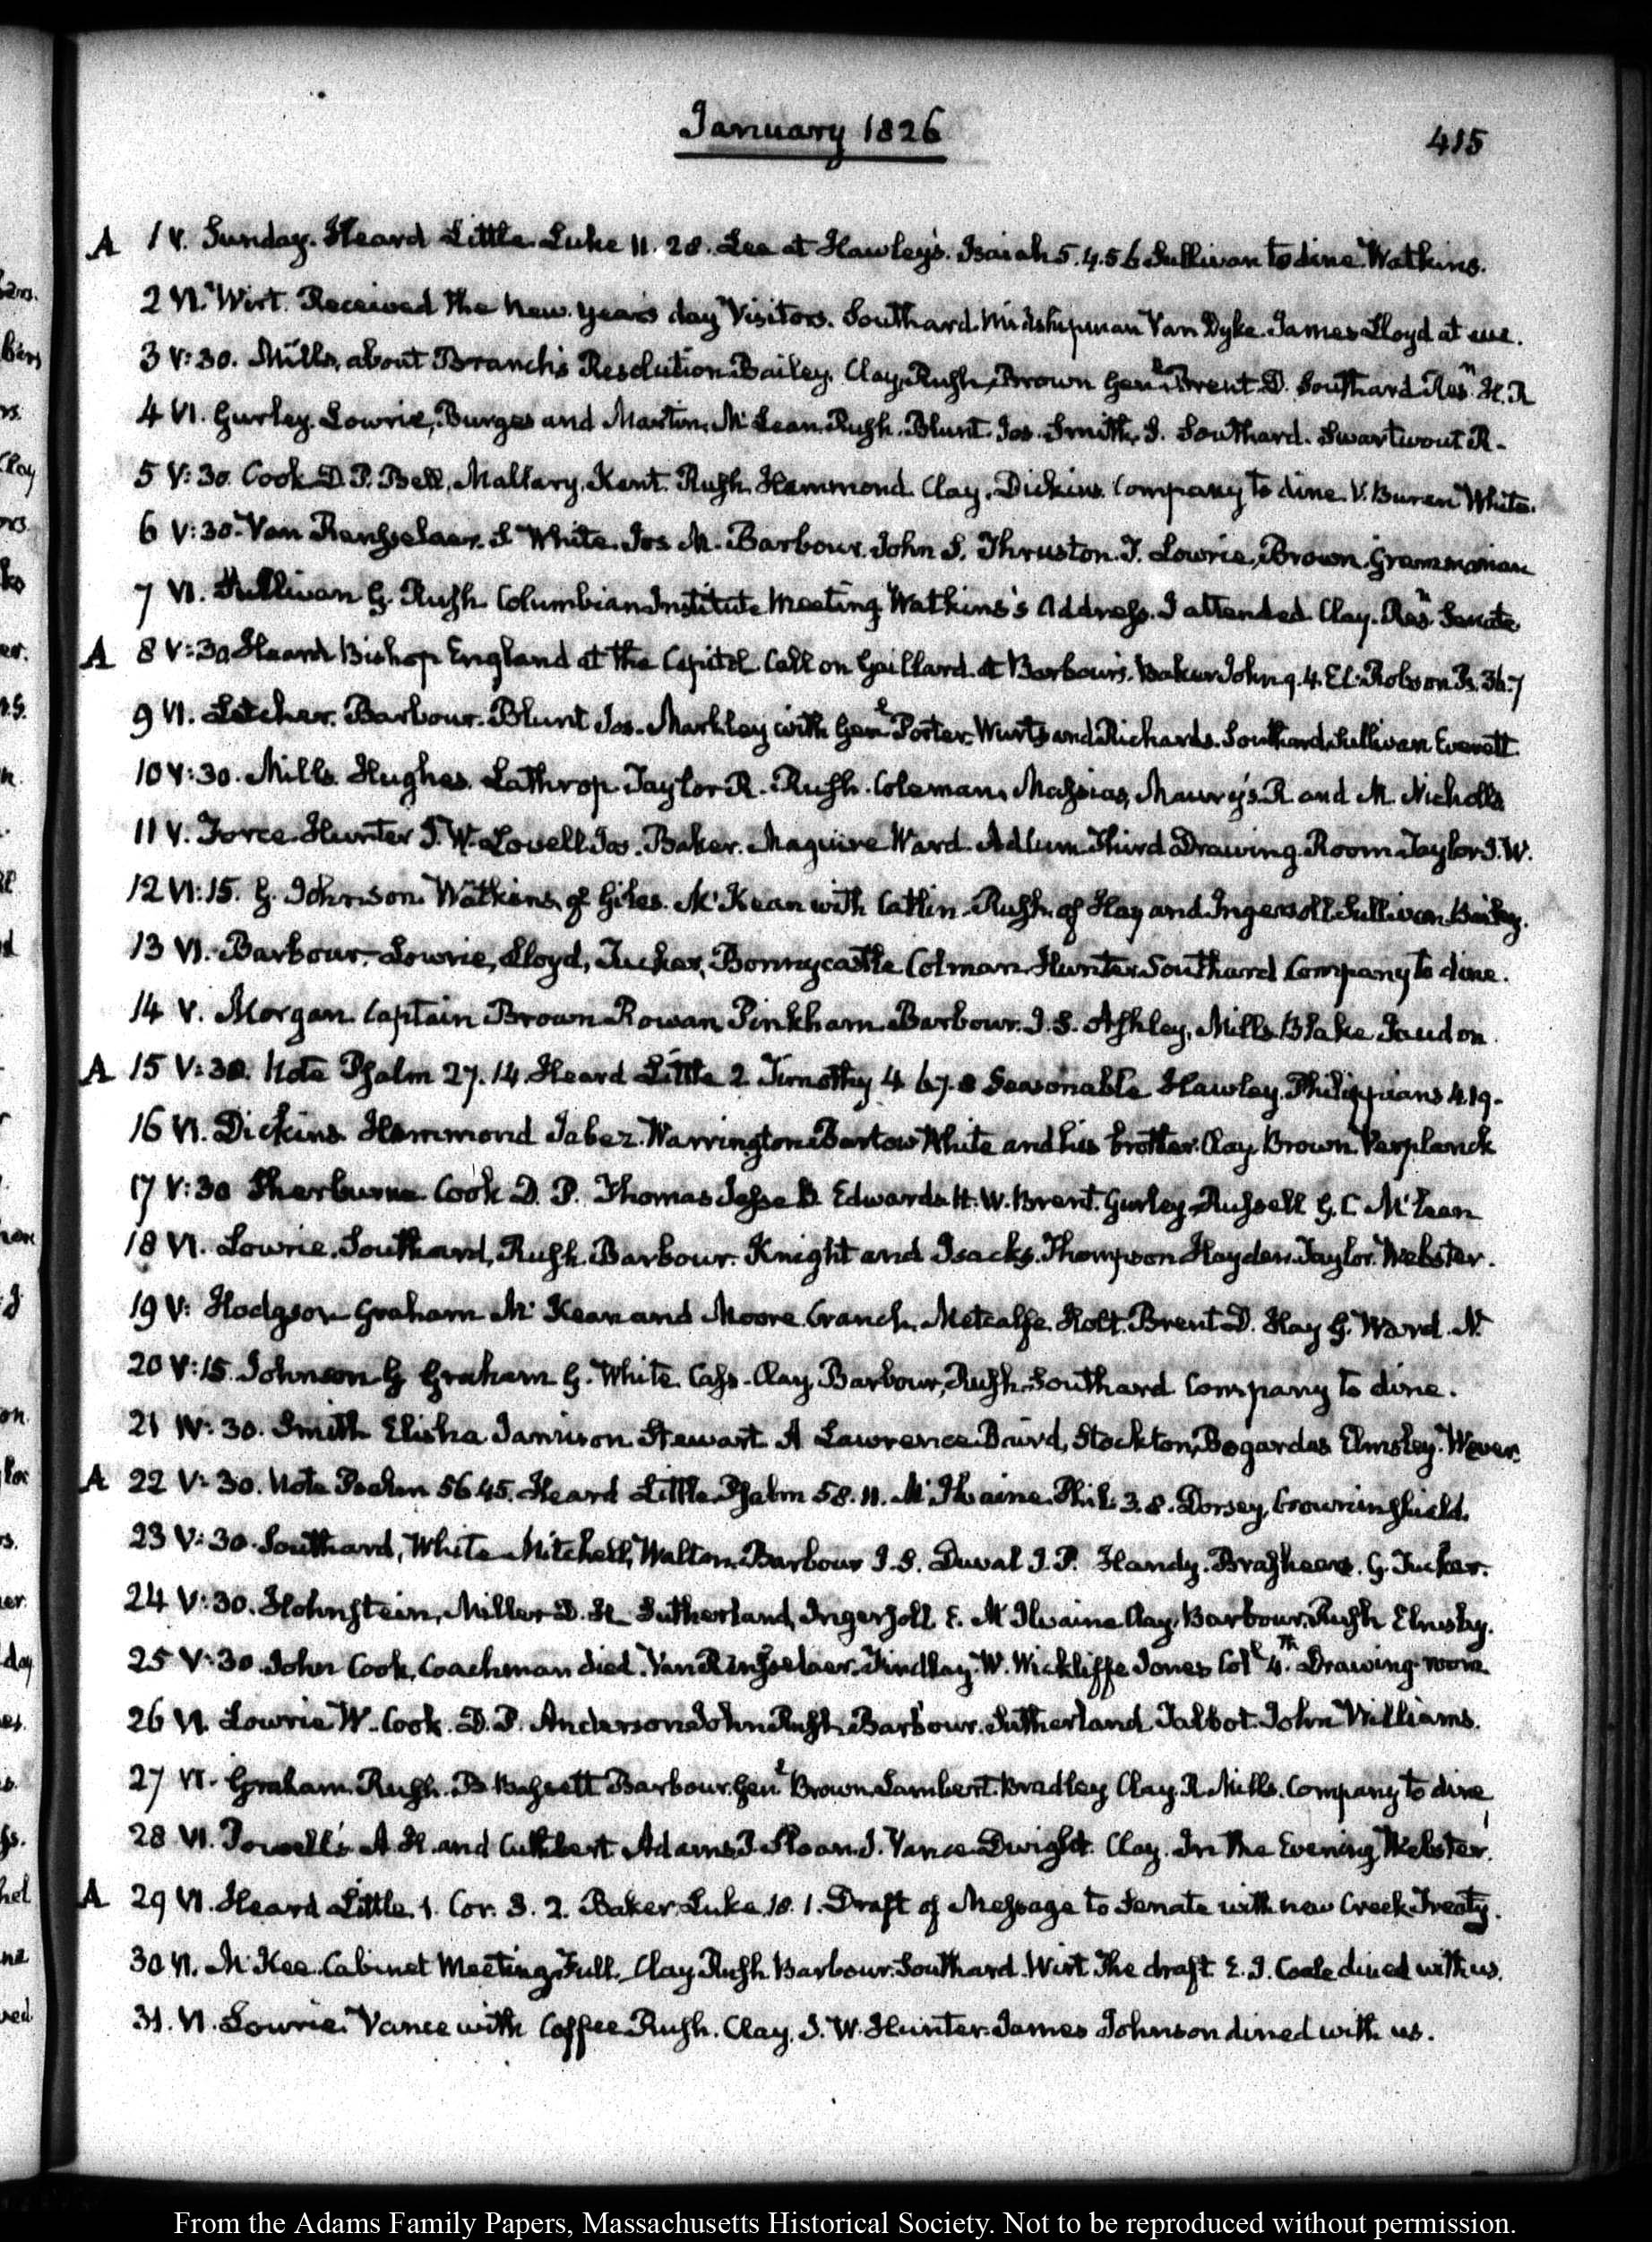 January 1826
415
A 1 V. Sunday. Heard Little Luke 11. 28. Lee at Hawley's. Isaiah 5. 4. 5 6 Sullivan to dine. Watkins.
2 VI. Wirt. Received the New years day Visitors. Southard. Midshipman Van Dyke. James Lloyd at eve.
3 V:30. Mills, about Branch's Resolution. Bailey. Clay, Rush, Brown Genl. Brent. D. Southard Resn. H. R
4 VI. Gurley. Lowrie, Burges and Martin. McLean. Rush. Blunt. Jos. Smith, S. Southard. Swartwout R.
5 V:30. Cook D. P. Bell, Mallary, Kent. Rush. Hammond. Clay, Dickins. Company to dine. V. Buren White.
6 V:30. Van Rensselaer. S. White. Jos. M. Barbour. John S. Thruston. T. Lowrie, Brown. Grammarian
7 VI. Sullivan G. Rush. Columbian Institute Meeting Watkins's Address. I attended. Clay. Resn. Senate.
A 8 V:30 Heard Bishop England at the Capitol Call on Gaillard. at Barbour's. Baker John 9. 4. El. Robson Ps. 36. 7
9 VI. Letcher. Barbour. Blunt Jos. Markley with Genl. Porter, Wurts and Richards. Southard Sullivan Everett
10 V:30. Mills. Hughes. Lathrop Taylor R. Rush. Coleman, Massias, Maury's. R and M. Nicholls
11 V. Force. Hunter J. W. Lovell Jos. Baker. Maguire Ward. Adlum. Third Drawing Room Taylor J. W.
12 VI:15. G. Johnson. Watkins of Giles. McKean with Catlin. Rush. of Hay and Ingersoll Sullivan Bailey.
13 VI. Barbour. Lowrie, Lloyd, Tucker, Bonnycastle Colman. Hunter Southard Company to dine.
14 V. Morgan. Captain Brown Rowan Pinkham. Barbour. J. S. Ashley, Mills Blake Jaudon.
A 15 V:30. Note Psalm 27. 14. Heard Little 2. Timothy 4. 6 7. 8 Seasonable Hawley. Philippians 4. 19.
16 VI. Dickins. Hammond Jabez. Warrington Bartow White and his brother. Clay Brown. Verplanck
17 V:30 Sherburne Cook D. P. Thomas Jesse B. Edwards H. W. Brent. Gurley Russell G. C McLean
18 VI. Lowrie. Southard, Rush. Barbour. Knight and Isacks. Thompson Hayden. Taylor. Webster.
19 V: Hodgson Graham McKean and Moore. Cranch. Metcalfe. Holt. Brent D. Hay G. Ward. N.
20 V:15. Johnson G. Graham G. White. Cass. Clay, Barbour, Rush Southard Company to dine.
21 IV:30. Smith Elisha Jamison Stewart. A Lawrence Baird, Stockton, Bogardas Elmsley. Wever.
A 22 V:30. Note Psalm 56 4 5. Heard Little. Psalm 58. 11. McIlvaine. Phil: 3. 8. Dorsey, Crowninshield.
23 V:30. Southard, White Mitchell, Walton. Barbour J. S. Duval I. P. Handy. Brashears. G. Tucker.
24 V:30. Hohnstein, Miller D. H Sutherland, Ingersoll E. McIlvaine Clay, Barbour, Rush Elmsley.
25 V:30 John Cook, Coachman died. Van Rensselaer. Findlay. W. Wickliffe Jones Coll. 4th. Drawing room.
26 VI. Lowrie W. Cook. D. P. Anderson John Rush Barbour. Sutherland Talbot. John Williams.
27 VI. Graham. Rush. B. Bassett Barbour. Genl. Brown. Lambert. Bradley Clay. R. Mills. Company to dine
28 VI. Powell's A. H. and Cuthbert Adams J. Sloan. J. Vance Dwight. Clay. In the Evening Webster.
A 29 VI. Heard Little. 1. Cor. 3. 2. Baker. Luke 18. 1. Draft of Message to Senate with new Creek Treaty.
30 VI. McKee. Cabinet Meeting Full. Clay Rush Barbour. Southard. Wirt The draft. E. J. Coale dined with us.
31. VI. Lowrie. Vance with Coffee. Rush. Clay. J. W. Hunter. James Johnson dined with us.
From the Adams Family Papers, Massachusetts Historical Society. Not to be reproduced without permission.